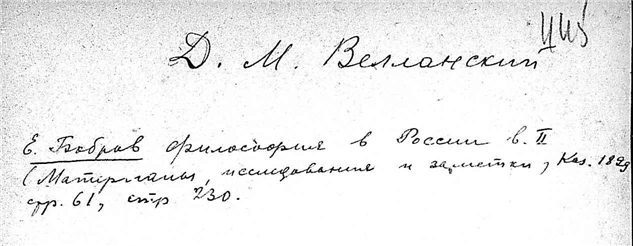 Д. М. Велланский
Е. Бобров философия в России в. II
(Материалы, исследования и заметки, Каз. 1899
стр. 61, стр 230.